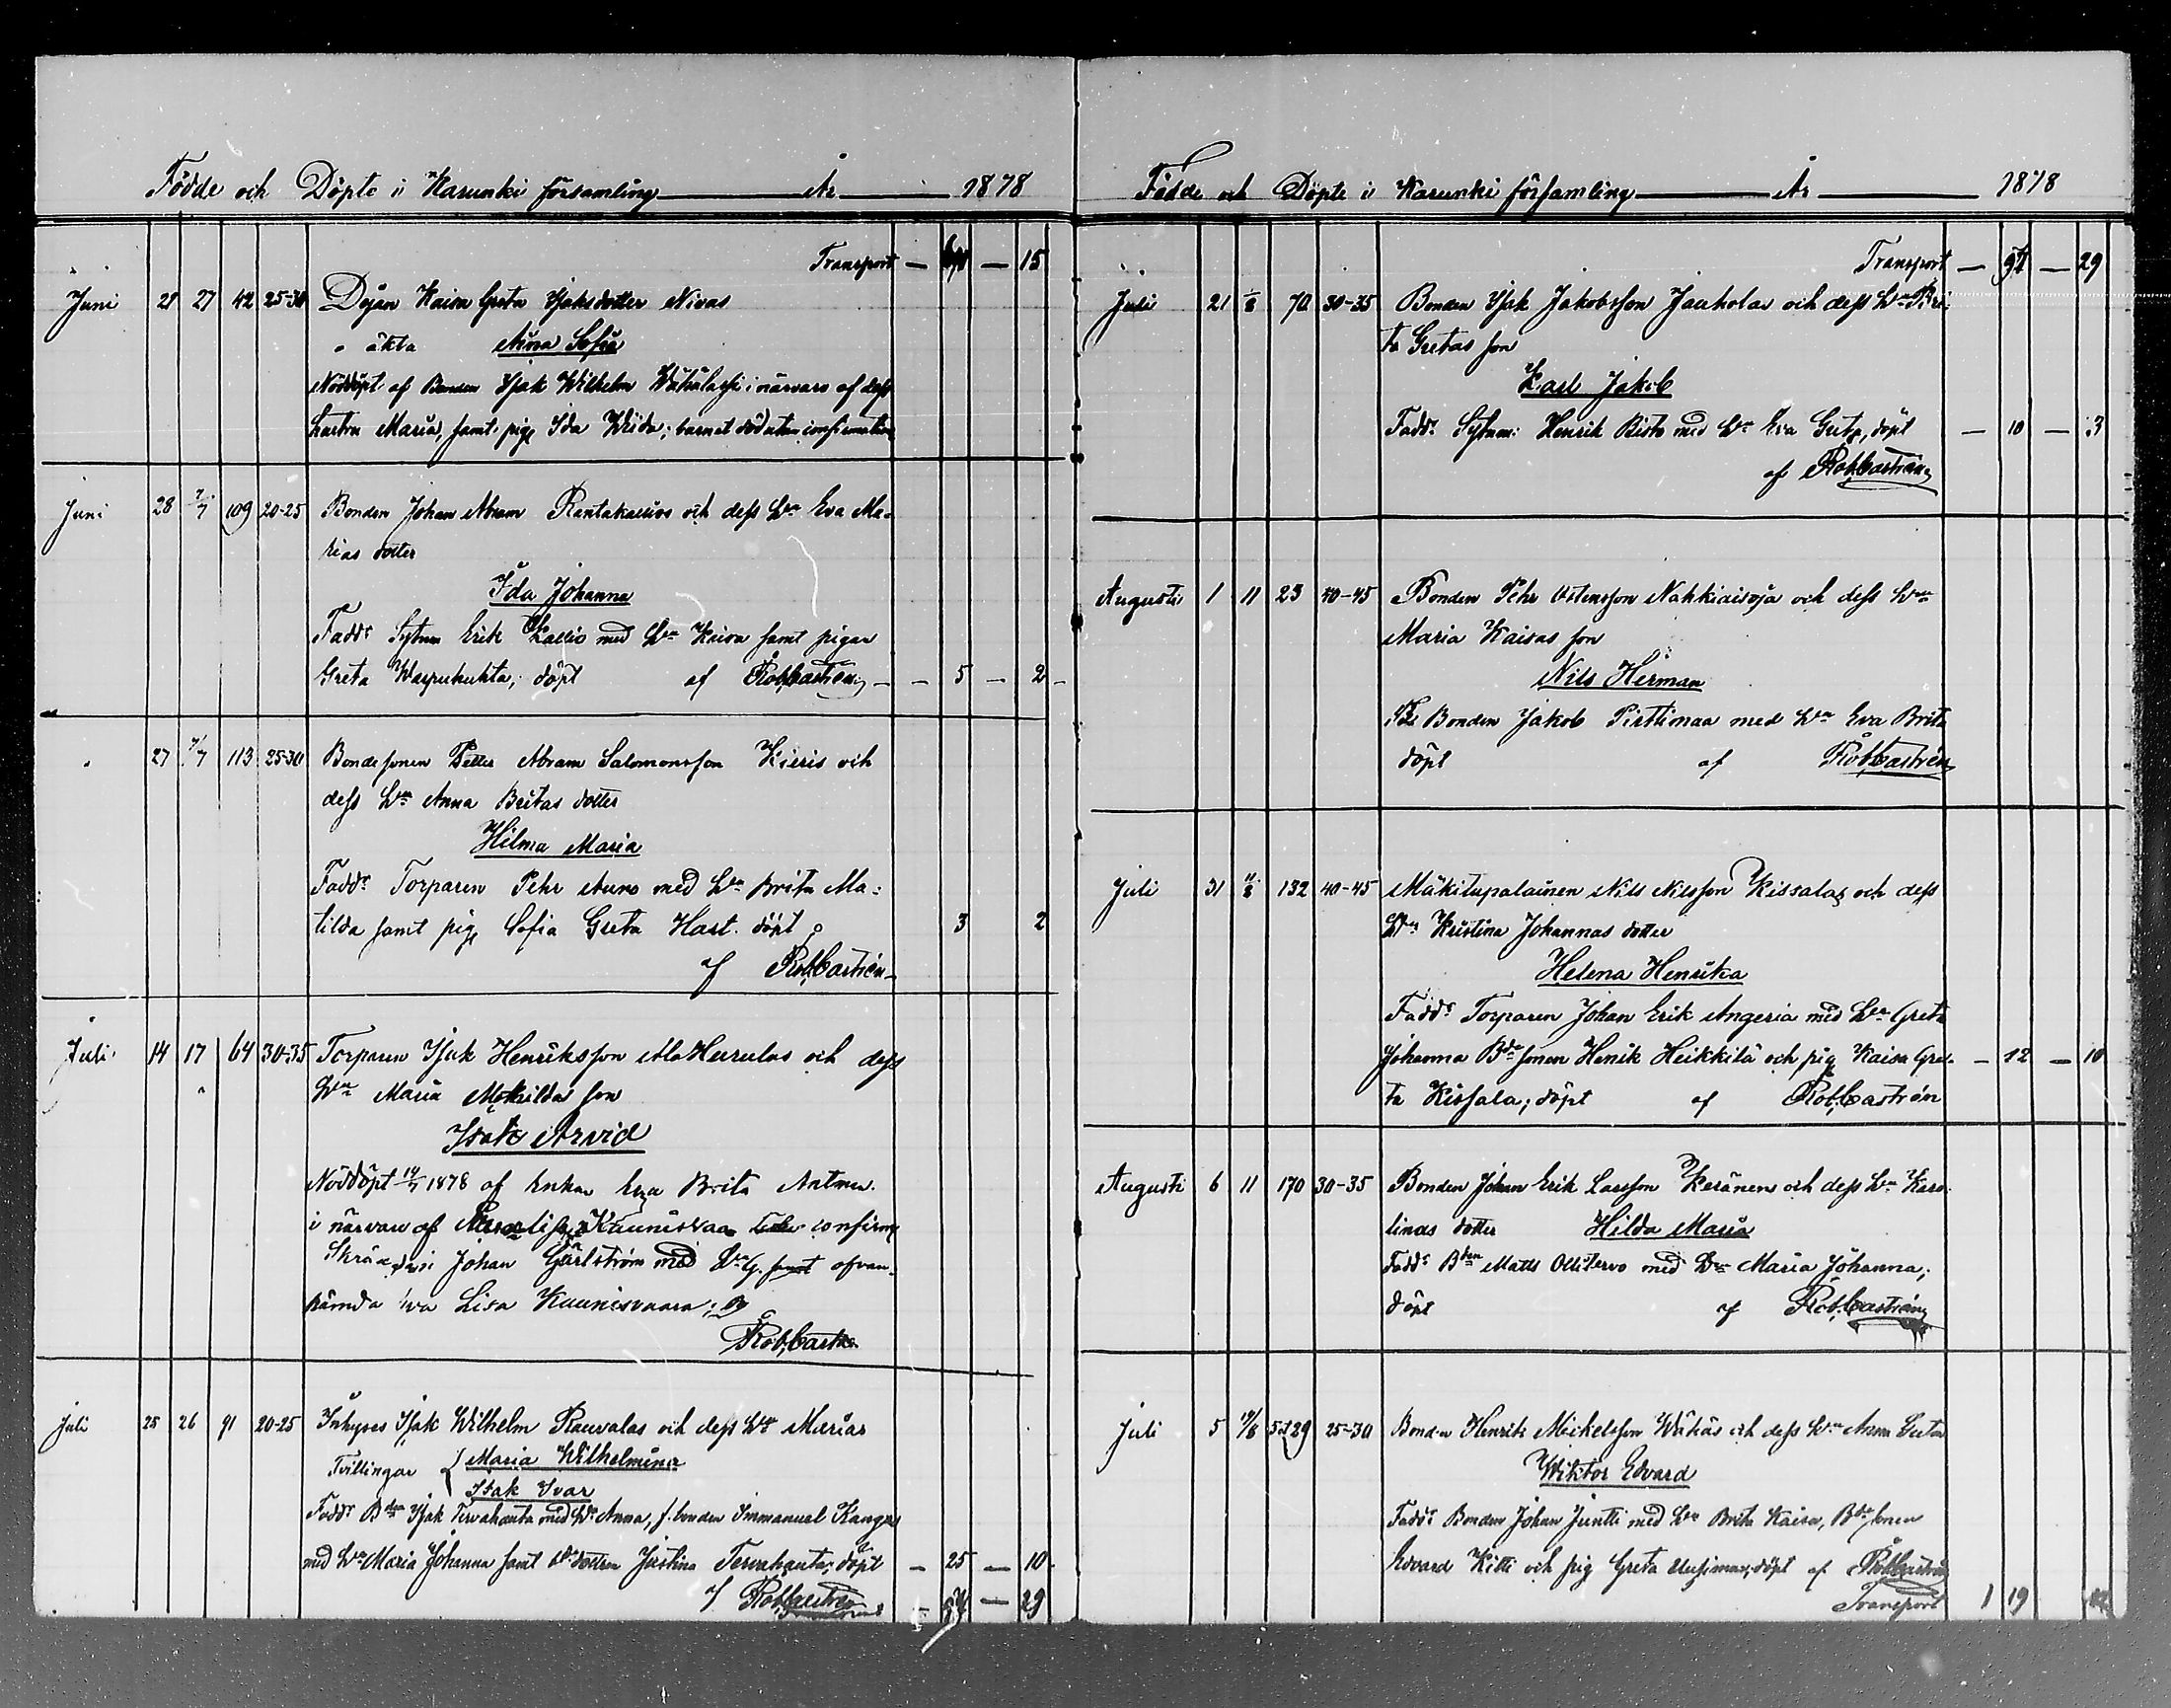 Födde och Döpte i Karunki församling År 1878
Transport — — 15
Juni 21 27 42 25-30 Dejan Kaisa Greta Isaksdotter Nivas
o äkta Aina Sofia
Nöddöpt af Bonden Isak Wilhelm i närvaro af dess
hustru Maria, samt pig Ida Wiida; barnet död utan confirmation
Juni 28 7/7 109 20-25 Bonden Johan Abram Rantakallios och dess Hu Eva Ma-
rias dotter
Ida Johanna
Faddr Sytnm Erik Kallio med Hu Kaisa samt pigan
Greta döpt af Rob. Castrén — — 5 — 2 —
27 7/7 113 25-30 Bondesonen Petter Abram Salomonsson Kieris och
dess Hu Anna Britas dotter
Hilma Maria
Faddr Torparen Pehr Auno med Hu Brita Ma-
tilda samt pig Sofia Greta Hast. döpt 3 2
af Rob. Castrén
Juli 14 17 64 30-35 Torparen Isak Henriksson Ala Herrulas och dess
Hu Maria Matildas son
Isak Arvid
Nöddöpt 14/7 1878 af Enkan Eva Brita
i närvaro af Kaunisvaa confirm
Johan med Hu G. samt ofvan-
nämda Eva Lisa Kaunisvaara;
Rob. Castrén
Juli 25 26 91 20-25 Inhyses Isak Wilhelm Rauvalas och dess Hu Marias
Tvillingar { Maria Wilhelmina
Isak Ivar
Faddr Bden Isak Tervahauta med Hu Anna, f. bonden Immanuel Kangas
med Hu Maria Johanna samt bdedottren Justina Tervahauta; döpt — 25 — 10
af Rob. Castrén — 94 — 29
Födde och Döpte i Karunki församling År 1878
Transport — 94 — 29
Juli 21 1/8 70 30-35 Bonden Isak Jakobsson Jauholas och dess Hu Bri-
ta Gretas son
Karl Jakob
Faddr Sytnm: Henrik Bisto med Hu Eva Greta, döpt — 10 — 3
af Rob. Castrén
Augusti 1 11 23 40-45 Bonden Pehr Ostensson Nahkiaisoja och dess Hu
Maria Kaisas son
Nils Herman
Fr Bonden Jakob Pirttimaa med Hu Eva Brita
döpt af Rob. Castrén
Juli 31 11/8 132 40-45 Mäkitupalainen Nils Nilsson Kissalas och dess
Hu Kristina Johannas dotter
Helena Henrika
Faddr Torparen Johan Erik Angeria med Hu Greta
Johanna Bdesonen Henik Heikkilä och pig Kaisa Gre- — 12 — 10
ta Kissala; döpt af Rob. Castrén
Augusti 6 11 170 30-35 Bonden Johan Erik Larsson Keränen och dess Hu Karo-
linas dotter Hilda Maria
Faddr Bden Matts Ollitervo med Hu Maria Johanna;
döpt af Rob. Castrén
Juli 5 129 25-30 Bonden Henrik Mickelsson Wähäs och dess Hu Anna Gretas
Wiktor Edvard
Faddr Bonden Johan Juntti med Hu Brita Kaisa, Bdesonen
Edvard Kitti och pig Greta Uusimaa, döpt af Rob. Castrén
Transport 1 19